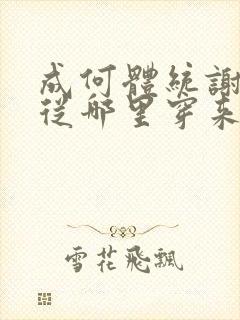 成何體統謝
從哪里穿来
雪花飛飄